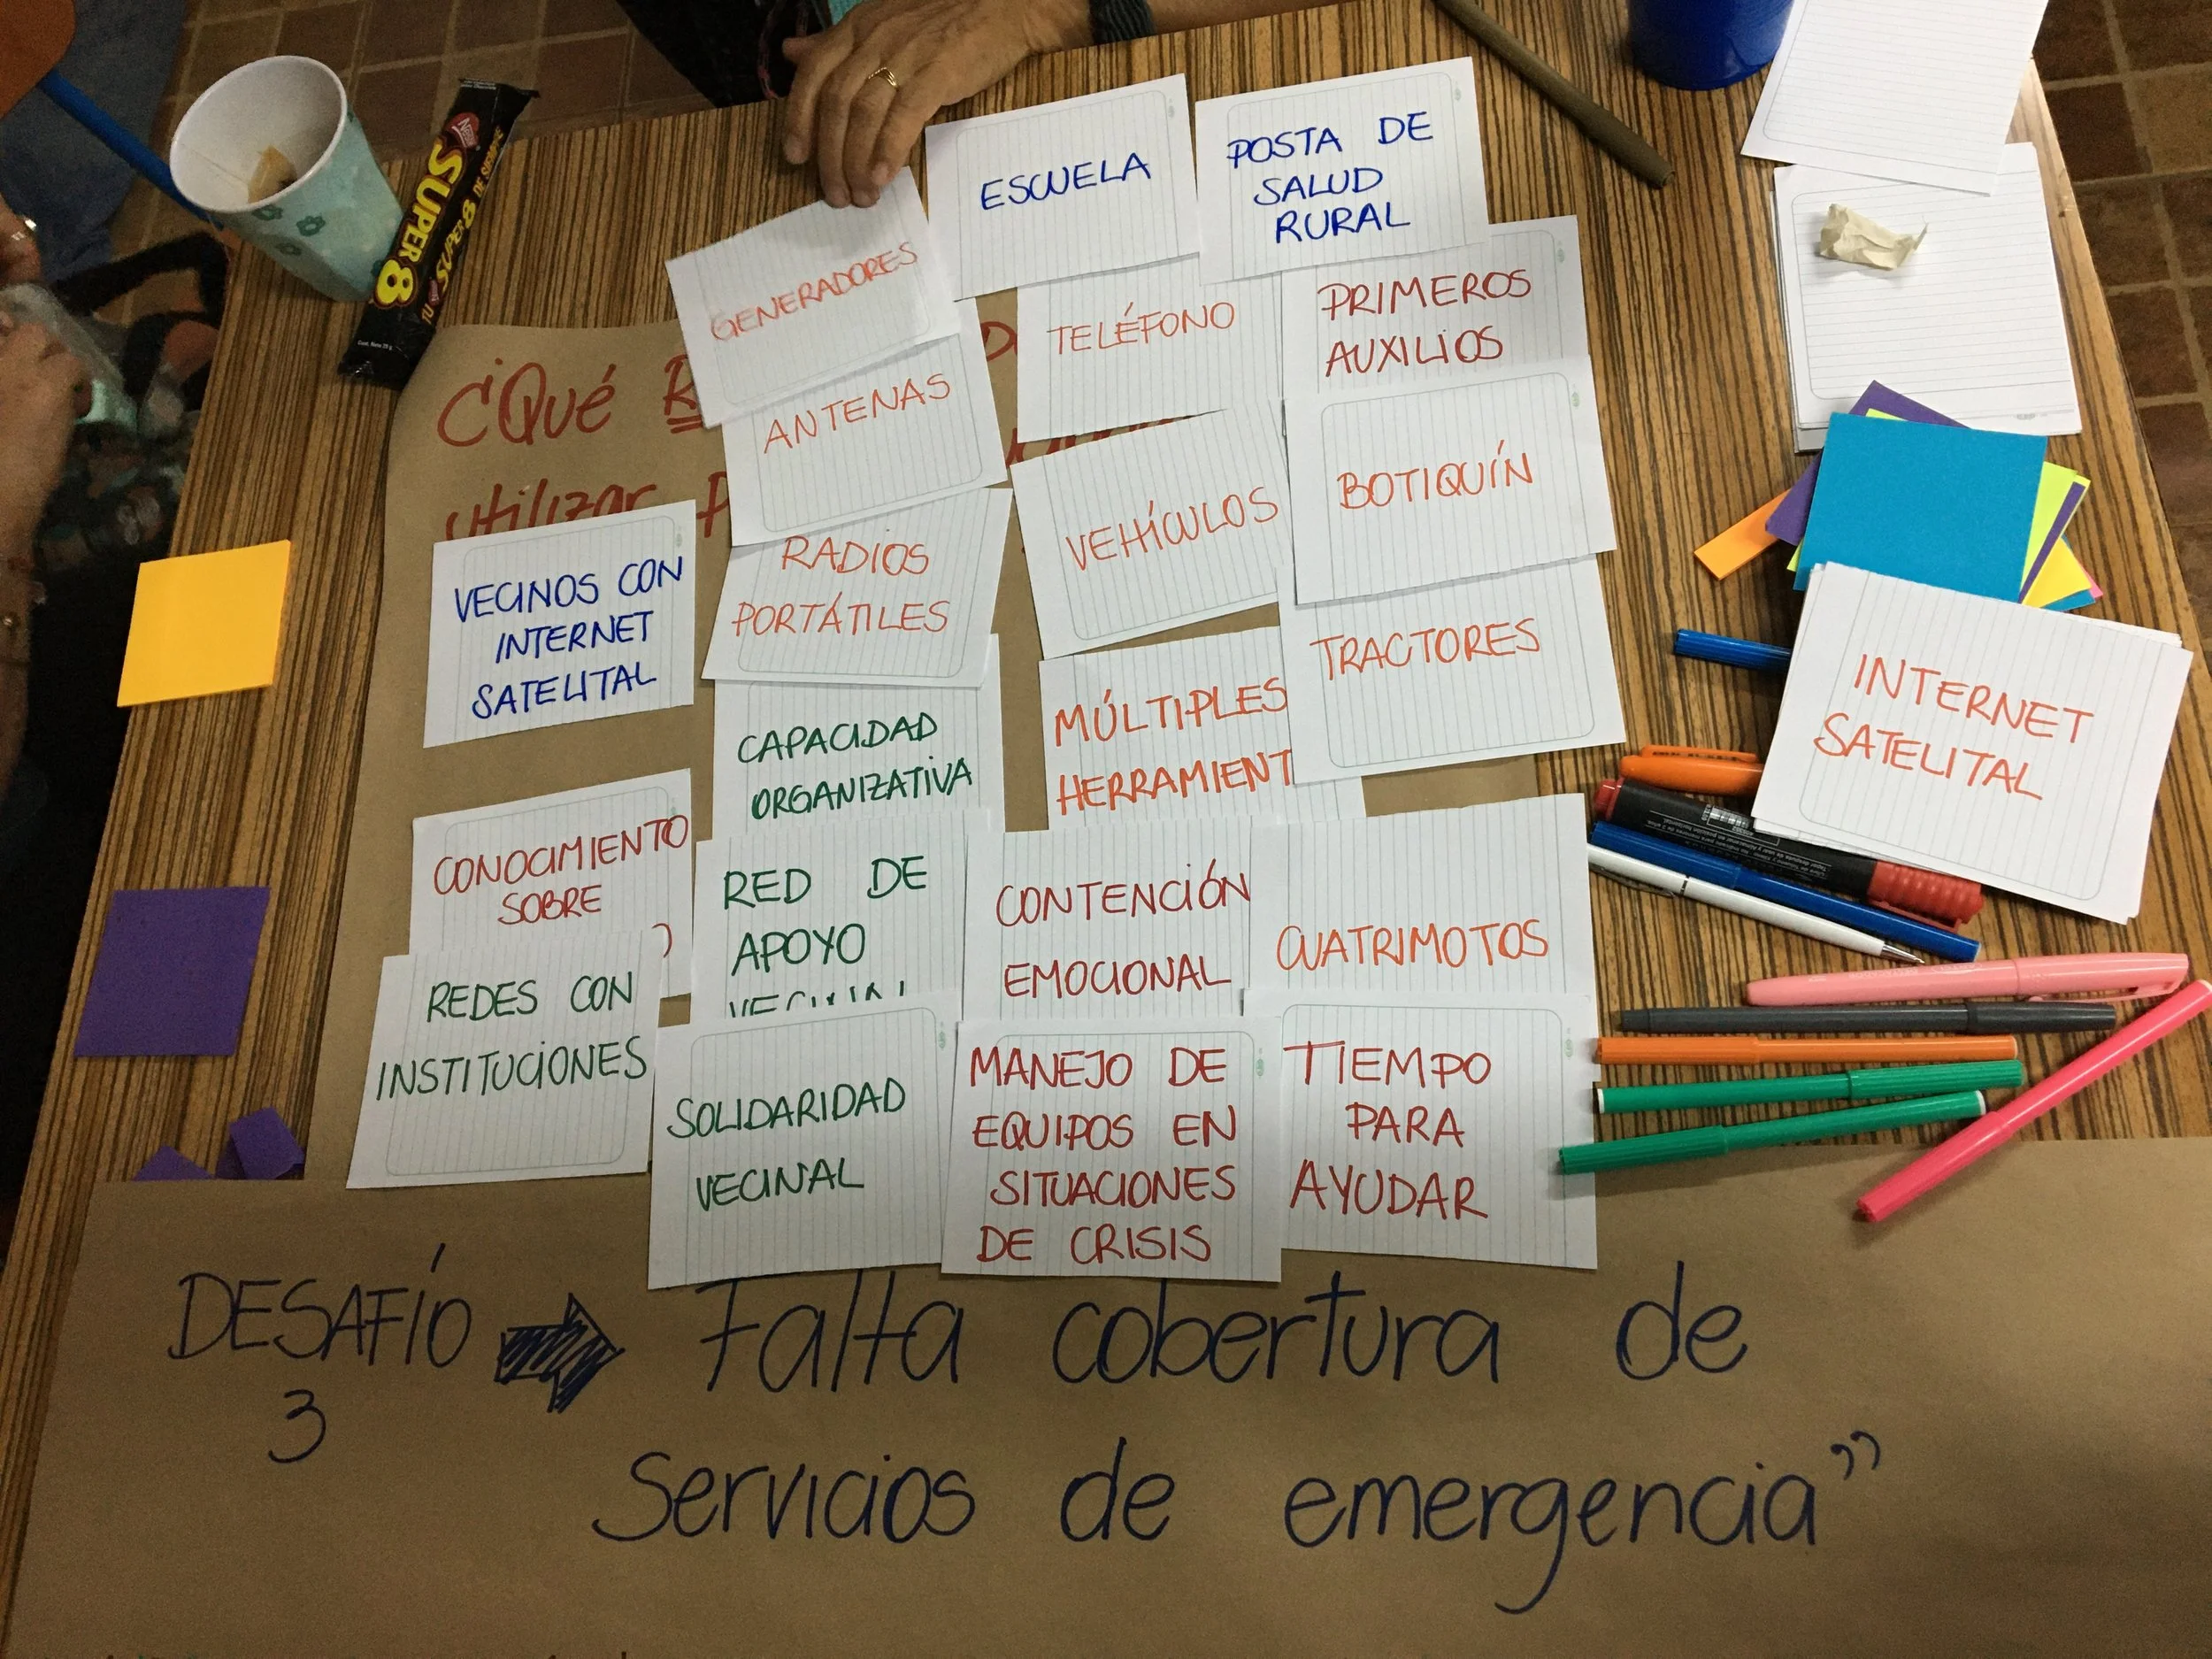 ESCUELA
POSTA DE
SALUD
RURAL
GENERADORES
TELÉFONO
PRIMEROS
AUXILIOS
¿Qué
utilizar
ANTENAS
VEHÍCULOS
BOTIQUÍN
VECINOS CON
INTERNET
SATELITAL
RADIOS
PORTÁTILES
TRACTORES
INTERNET
SATELITAL
CAPACIDAD
ORGANIZATIVA
MÚLTIPLES
HERRAMIENT
CONOCIMIENTO
SOBRE
RED DE
APOYO
CONTENCIÓN
EMOCIONAL
CUATRIMOTOS
REDES CON
INSTITUCIONES
SOLIDARIDAD
VECINAL
MANEJO DE
EQUIPOS EN
SITUACIONES
DE CRISIS
TIEMPO
PARA
AYUDAR
DESAFÍO
3
Falta cobertura de
Servicios de emergencia”
Nestlé
SUPER 8
TU SUPER 8 DE SIEMPRE